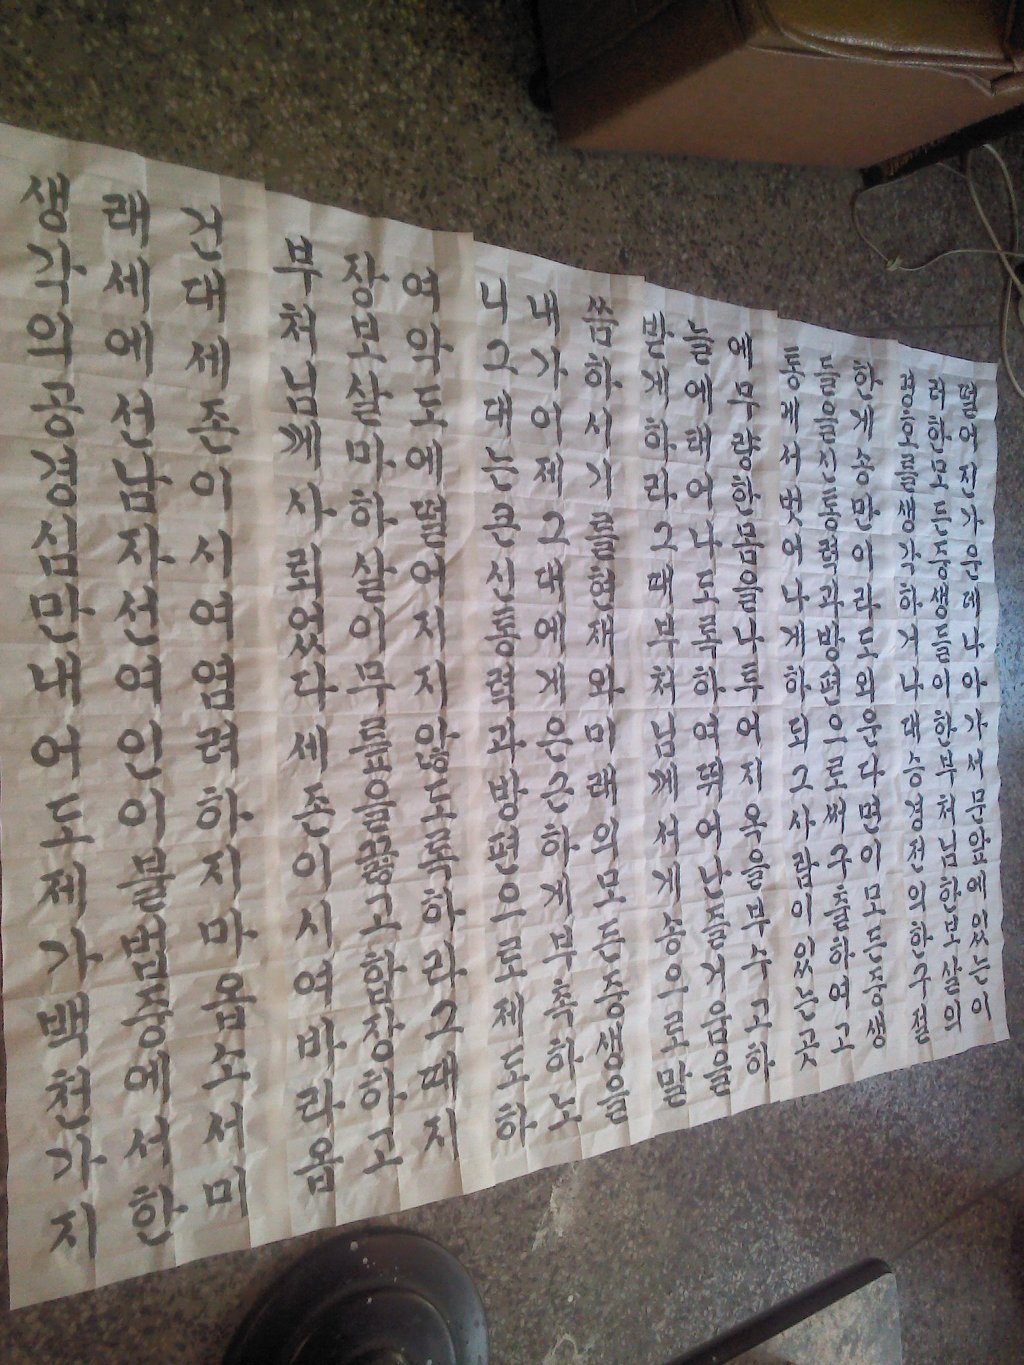 떨어진가운데나아가서문앞에있는이
러한모든중생들이한부처님한보살의
경이름을생각하거나대승경전의한구절
한게송만이라도외운다면이모든중생
들을신통력과방편으로써구출하여고
통에서벗어나게하되그사람이있는곳
에무량한몸을나투어지옥을부수고하
늘에태어나도록하여뛰어난즐거움을
받게하라그때부처님께서게송으로말
씀하시기를현재와미래의모든중생을
내가이제그대에게은근하게부촉하노
니그대는큰신통력과방편으로제도하
여악도에떨어지지않도록하라그때지
장보살마하살이무릎을꿇고합장하고
부처님께사뢰었다세존이시여바라옵
건대세존이시여염려하지마옵소서미
래세에선남자선여인이불법중에서한
생각의공경심만내어도제가백천가지